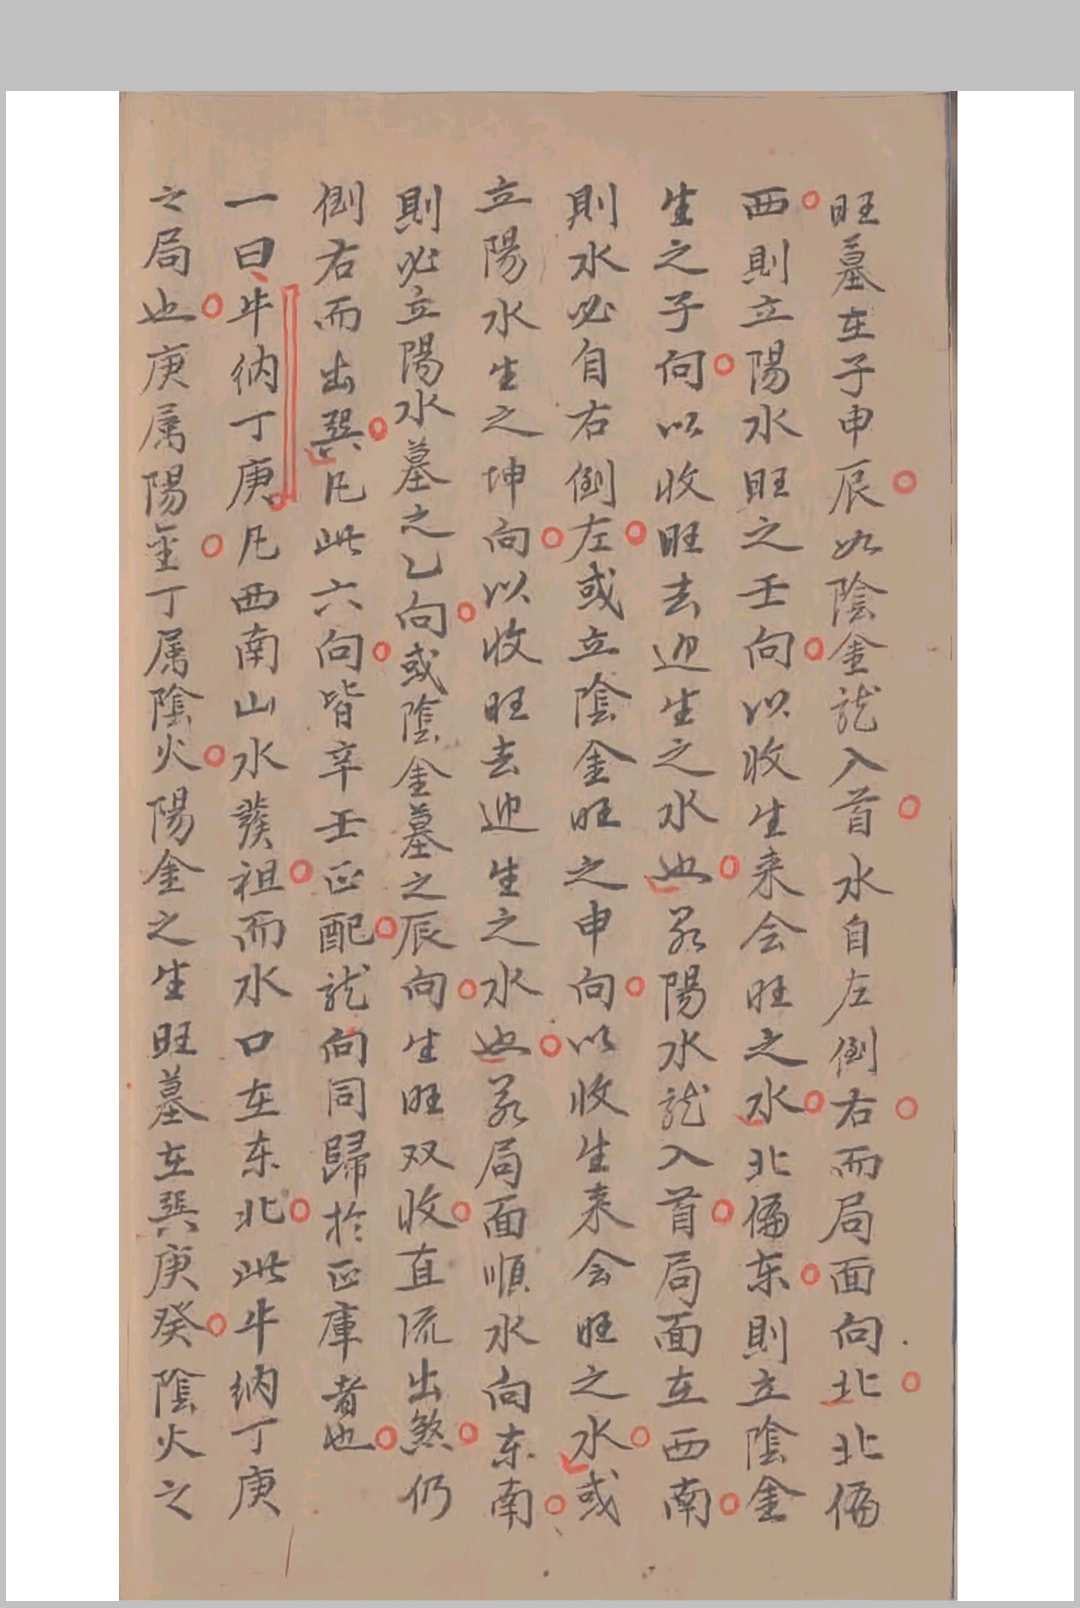 旺墓在子申辰如陰金龍入首水自左倒右而局面向北北偏
西則立陽水旺之壬向以收生来会旺之水北偏东則立陰金
生之子向以收旺去迎生之水也若陽水龍入首局面在西南
則水必自右倒左或立陰金旺之申向以收生来会旺之水或
立陽水生之坤向以收旺去迎生之水也若局面順水向东南
則必立陽水墓之乙向或陰金墓之辰向生旺双收直流出煞仍
倒右而出巽凡此六向皆辛壬正配龍向同歸於正庫者也
一曰牛納丁庚凡西南山水發祖而水口在东北此牛納丁庚
之局也庚属陽金丁属陰火陽金之生旺墓在巽庚癸陰火之